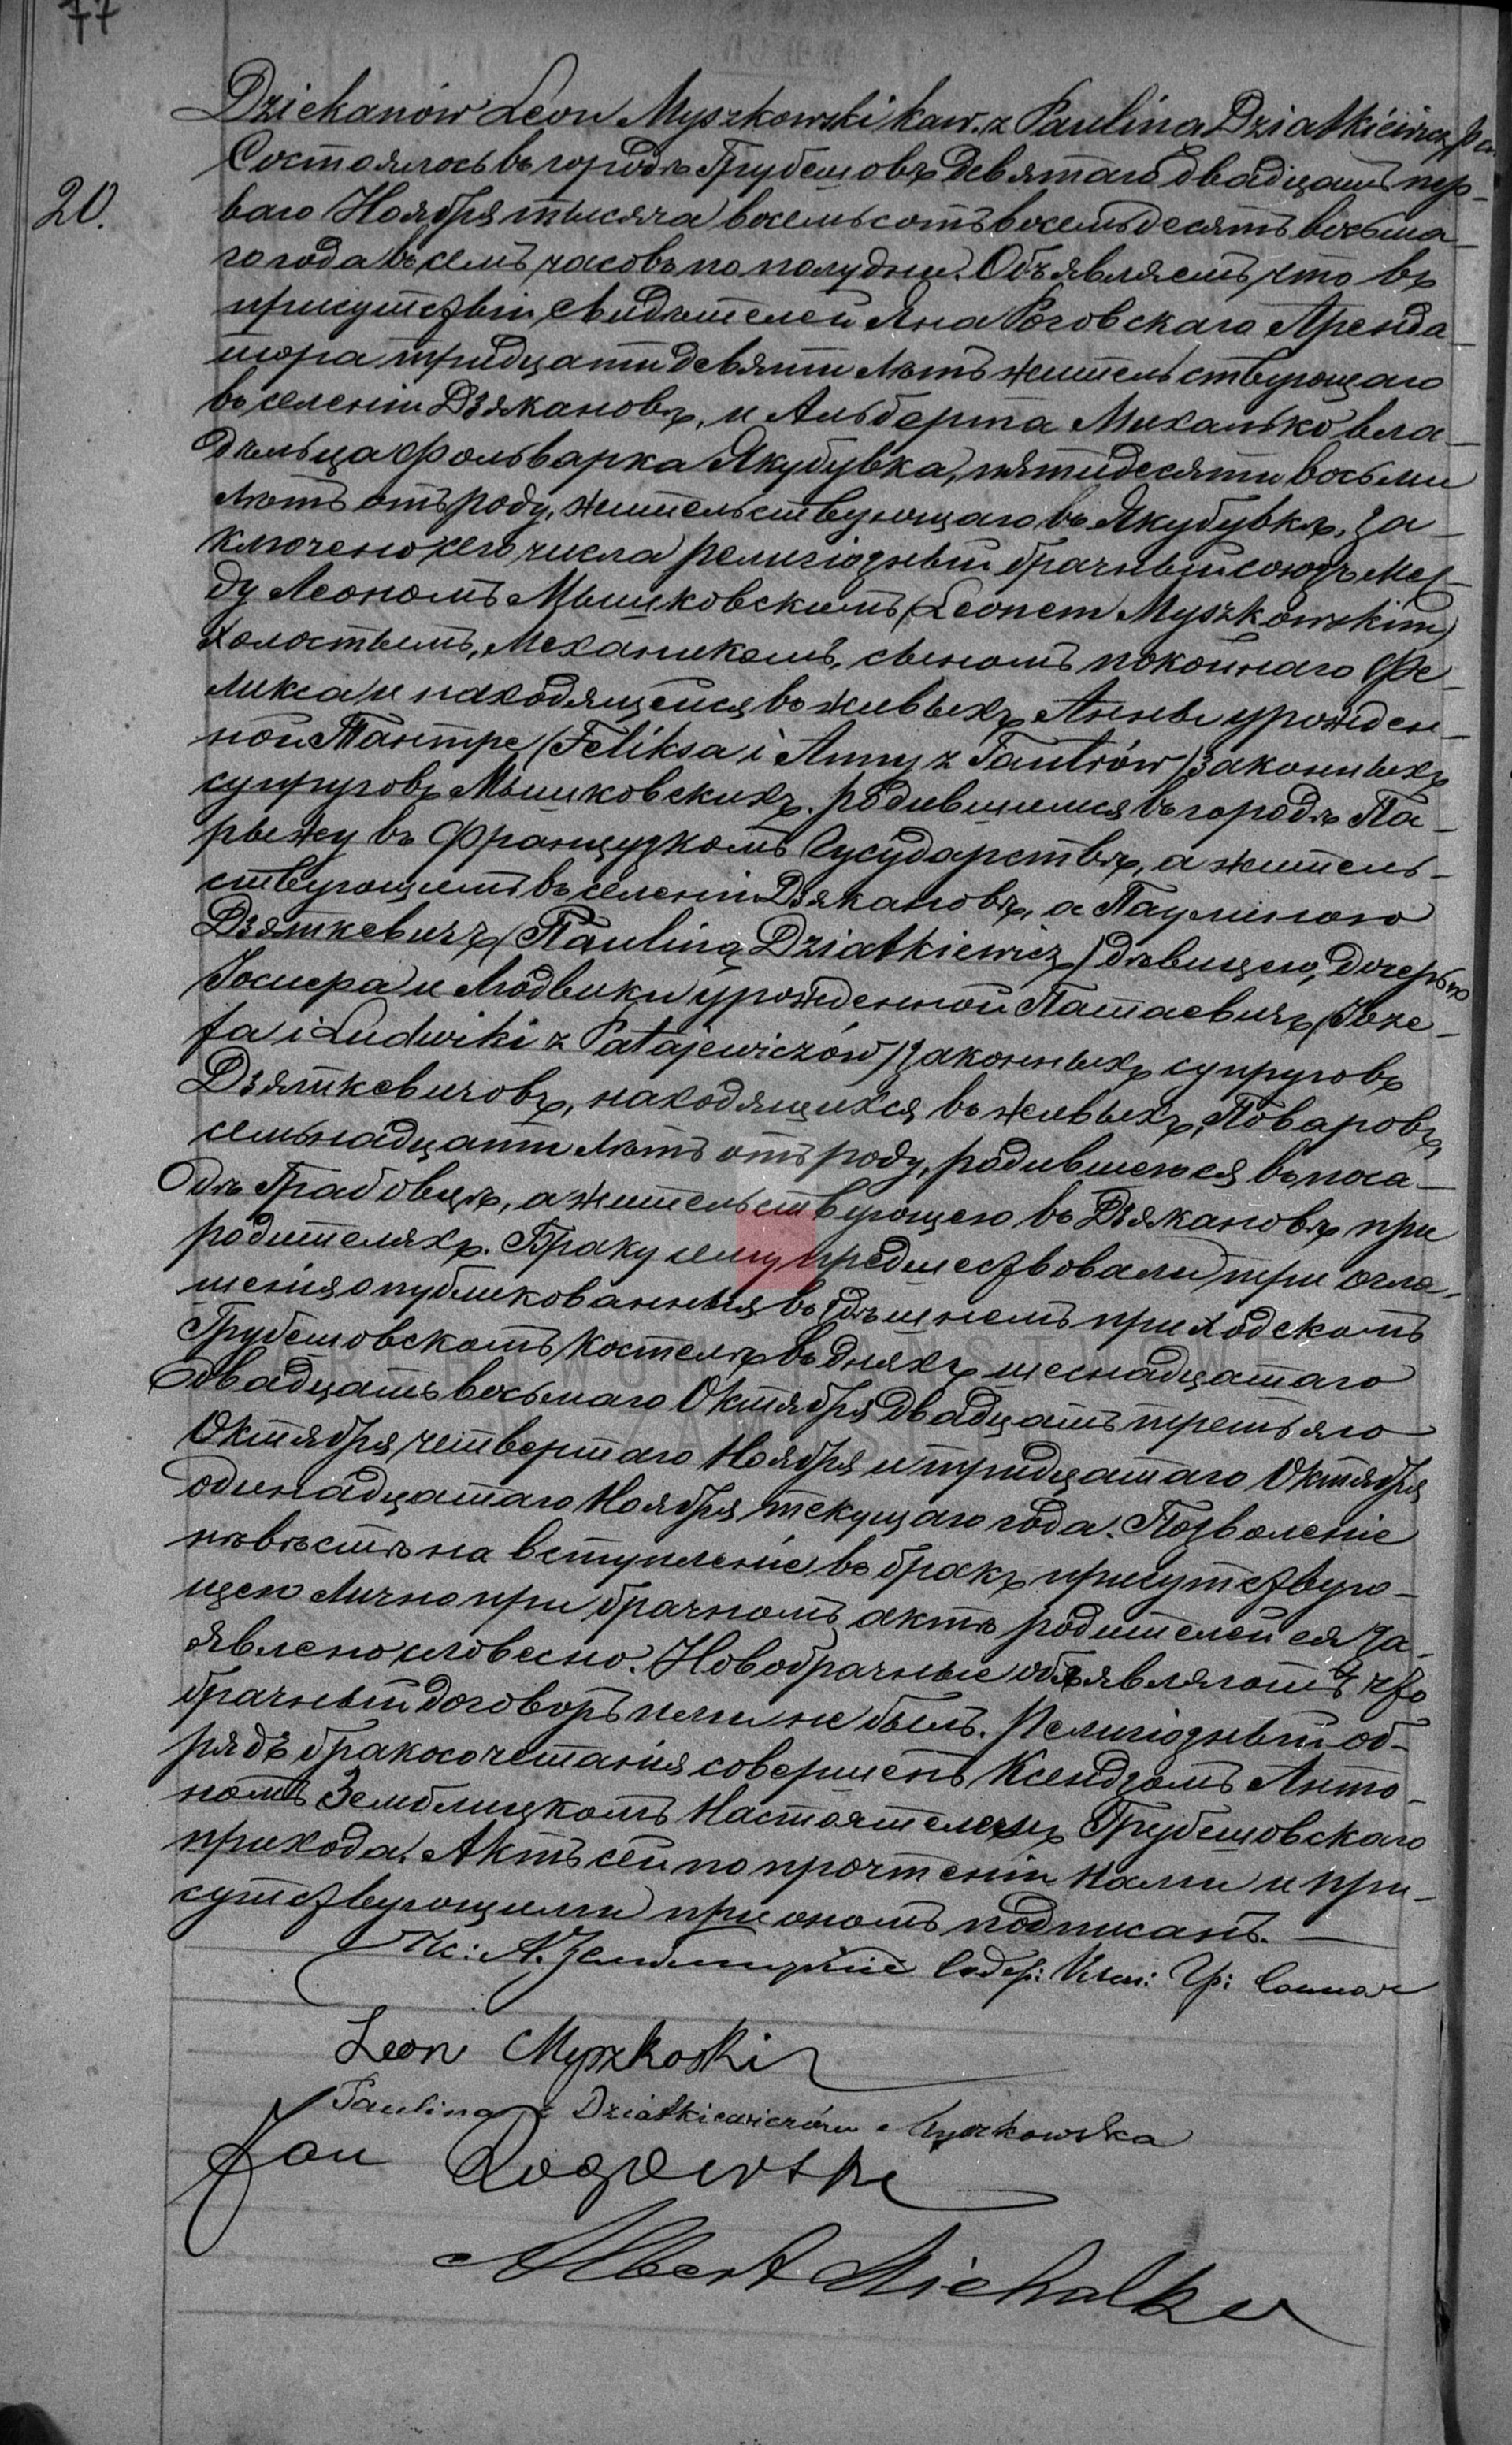 77
20.
Dziekanów Leon Myszkowski kaw. z Paulina Dziatkiewicz
Состоялось въ городѣ Грубешовѣ девятаго двадцать пер-
ваго Ноября тысяча восемьсотъ восемьдесятъ восьма-
го года въ семь часовъ по полудни. Объявляемъ, что въ
присутствіи свидѣтелей Яна Роговскаго Аренда-
тора тридцати девяти лѣтъ жительствующаго
въ селеніи Дзякановѣ, и Альберта Михалько вла-
дѣльца фольварка Якубувка, пятидесяти восьми
лѣтъ отъ роду, жительствующаго въ Якубувкѣ, за-
ключено сего числа религіозный брачный союзъ меж-
ду Леономъ Мышковскимъ (Leonem Myszkowskim)
холостымъ, механикомъ, сыномъ покойнаго Фе-
ликса и находящейся въ живыхъ Анны урожден-
ной Тантре (Feliksa i Anny z Tantrów) законныхъ
супруговъ Мышковскихъ. родившимся въ городѣ Па-
рыжу въ Французкомъ Гусударствѣ, а житель-
ствующимъ въ селеніи Дзякановѣ, а Паулиною
Дзяткевичъ (Pauliną Dziatkiewicz) дѣвицею, дочерью
Іосифа и Людвики урожденной Патаевичъ (Józe-
fa i Ludwiki z Patajewiczów) законныхъ супруговъ
Дзяткевичовъ, находящихся въ живыхъ, Поваровъ,
семьнадцати лѣтъ отъ роду, родившеюся въ поса-
дѣ Грабовцѣ, а жительствующею въ Дзякановѣ при
родителяхъ. Браку сему предшествовали три огла-
шенія опубликованныя въ здѣшнемъ приходскомъ
Грубешовскомъ Костелѣ въ дняхъ шеснадцатаго
двадцать восьмаго Октября двадцать третьяго
Октября, четвертаго Ноября и тридцатаго Октября
одинадцатаго Ноября текущаго года. Позволеніе
невѣстѣ на вступленіе въ бракъ присутствую-
щею лично при брачномъ актѣ родителей ея за-
явлено словесно. Новобрачные объявляютъ что
брачный договоръ ими не былъ. Религіозный об-
рядъ бракосочетанія совершенъ Ксендзомъ Анто-
номъ Земблицкомъ Настоятелемъ Грубешовскаго
прихода. Актъ сей по прочтеніи нами и при-
сутствующими при ономъ подписанъ.
Кс: А.
Leon Myszkoski
Paulina z Dziatkiewiczów Myszkowska
Jan Rogowski
Albert Michalko